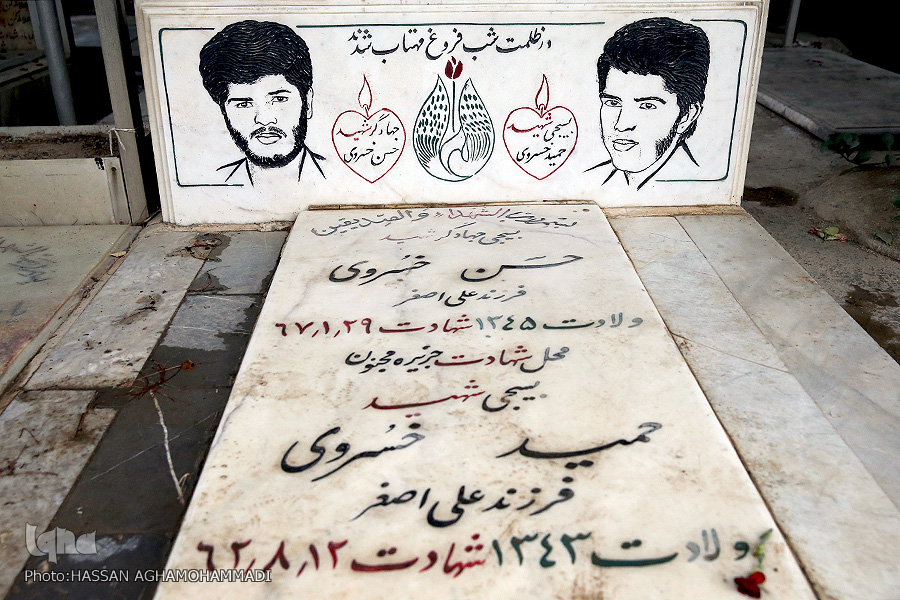 در ظلمت شب فروغ مهتاب شدند
بسیجی شهید
حمید خسروی
جهادگر شهید
حسن خسروی
الشهداء و الصدیقین
بسیجی جهادگر شهید
حسن خسروی
فرزند علی اصغر
ولادت ۱۳۴۵ شهادت ۶۷٫۱٫۲۹
محل شهادت جزیره مجنون
بسیجی شهید
حمید خسروی
فرزند علی اصغر
ولادت ۱۳۴۳ شهادت ۶۲٫۸٫۱۲
iqna
Photo:HASSAN AGHAMOHAMMADI